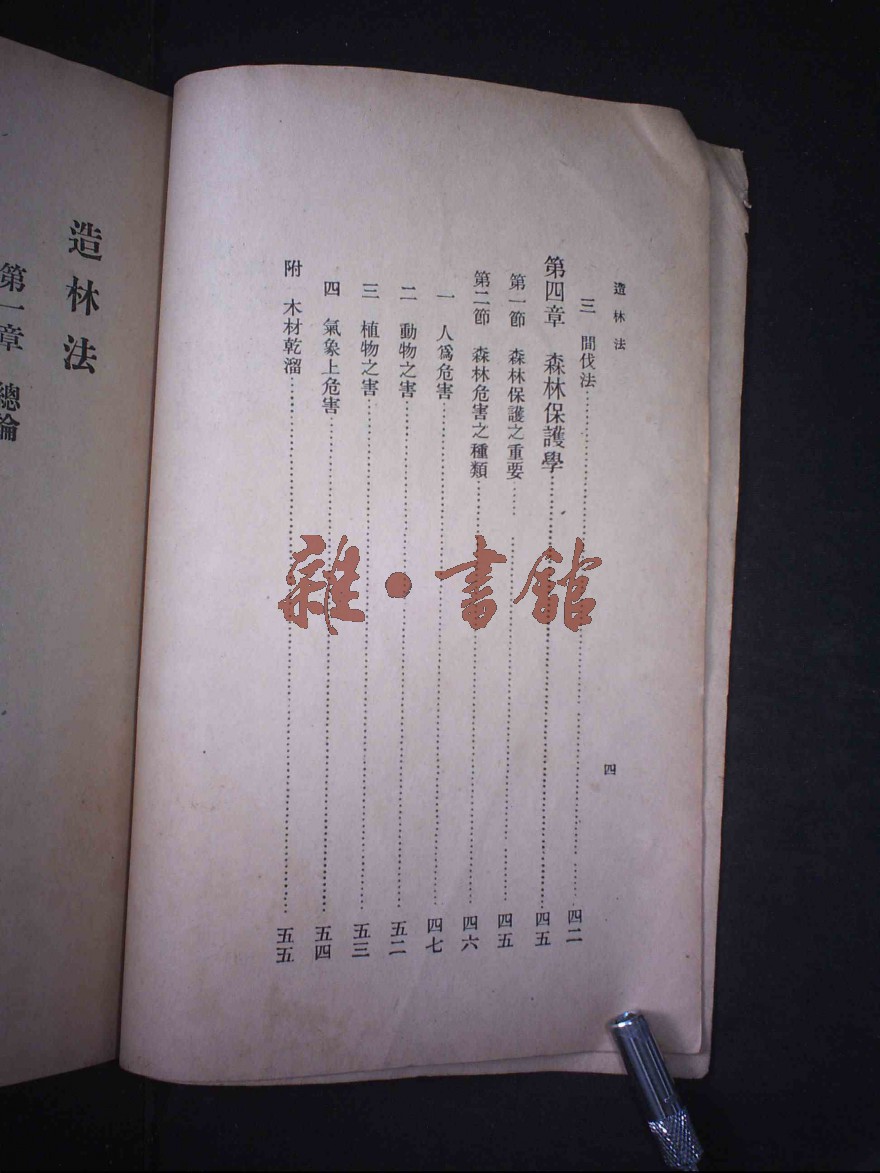 造林法
三 間伐法 四二
第四章 森林保護學 四五
第一節 森林保護之重要 四五
第二節 森林危害之種類 四六
一 人爲危害 四七
二 動物之害 五二
三 植物之害 五三
四 氣象上危害 五四
附 木材乾溜 五五
四
雜·書館
造林法
第一章 總論